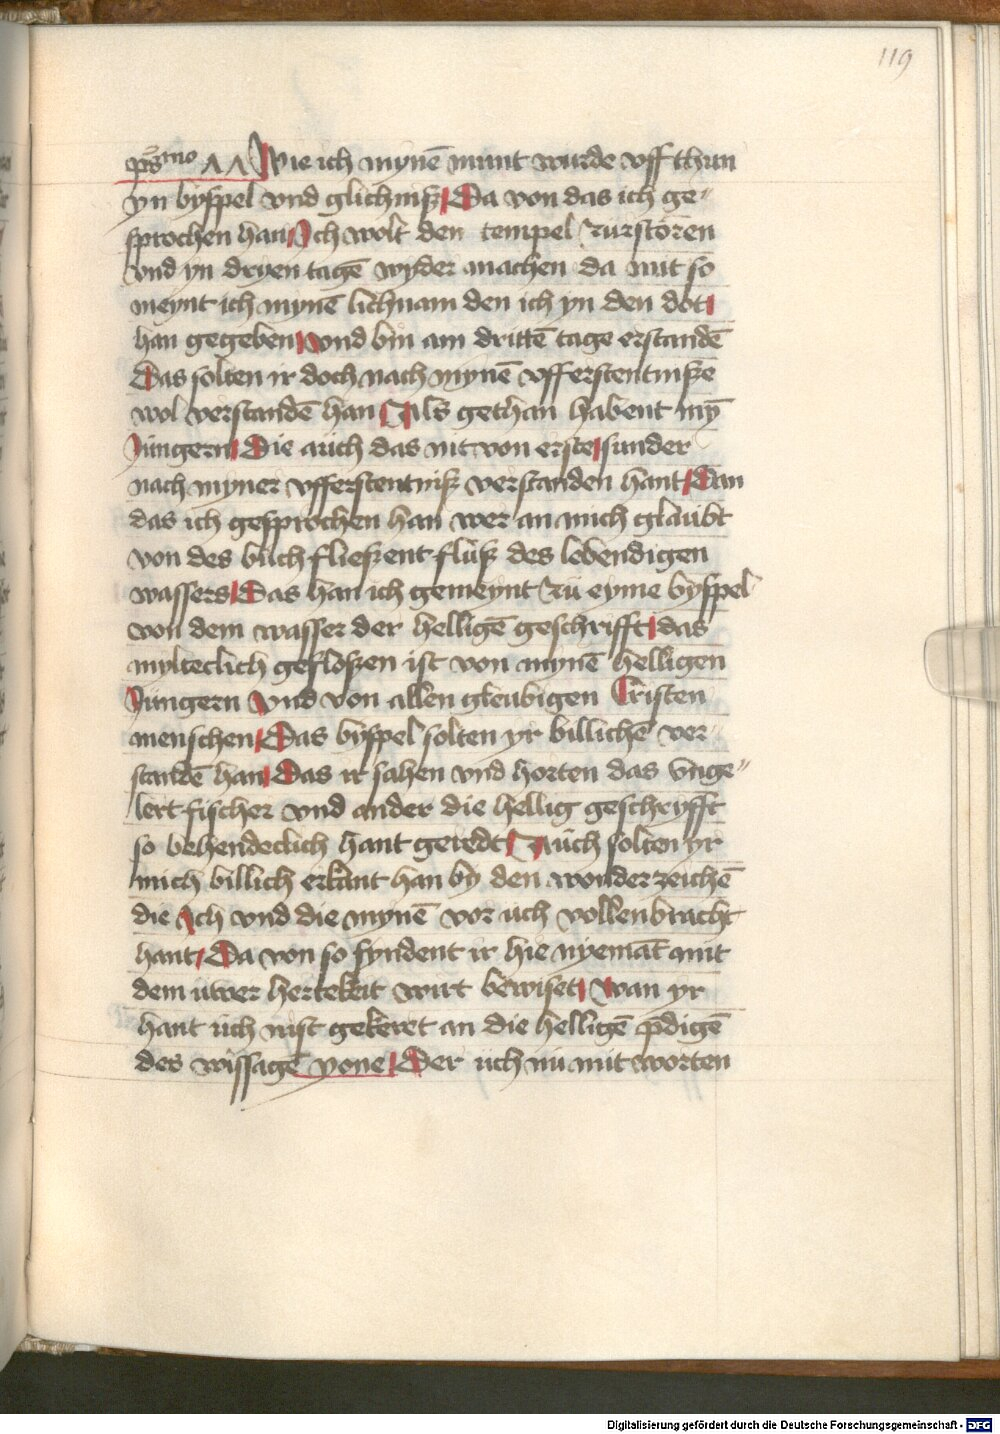 119
ps̄mo ΛΛ Wie ich mynē munt wurde vff thun
yn byspel vnd glichniß Da von das ich ge〃
sprochen han Ich wolt den tempel zurstoren
vnd yn dryen tagē wyder machen da mit so
meynt ich mynē lichnam den ich yn den dot
han gegeben vnd bin am drittē tage erstandē
Das solten ir doch nach mynē vfferstentnißē
wol verstandē han Als gethan habent mȳ
Jungern Die auch das nit von erste sunder
nach myner vfferstentniß verstanden hant Dan
das ich gesprochen han wer an mich glaubt
von des buch fließent fluß des lebendigen
wassers Das han ich gemeynt zu eyme byspel
von dem wasser der helligē geschrifft das
mylteclich gefloßen ist von mynē helligen
Jungern vnd von allen gleubigen Cristen
menschen Das byspel solten yr billichē ver
standē han Das ir sahen vnd horten das vnge〃
lert fischer vnd ander die hellig geschryfft
so behendeclich hant geredt Auch solten yr
mich billich erkant han by den wonderzeichē
die Ich vnd die mynē vor uch vollenbracht
hant Da von so fyndent ir hie nyemāt mit
dem uwer hertekeit wirt bewiset wan yr
hant uch nist gekeret an die helligē p̄digē
des wissagē yone Der uch nu mit worten
Digitalisierung gefördert durch die Deutsche Forschungsgemeinschaft - DFG